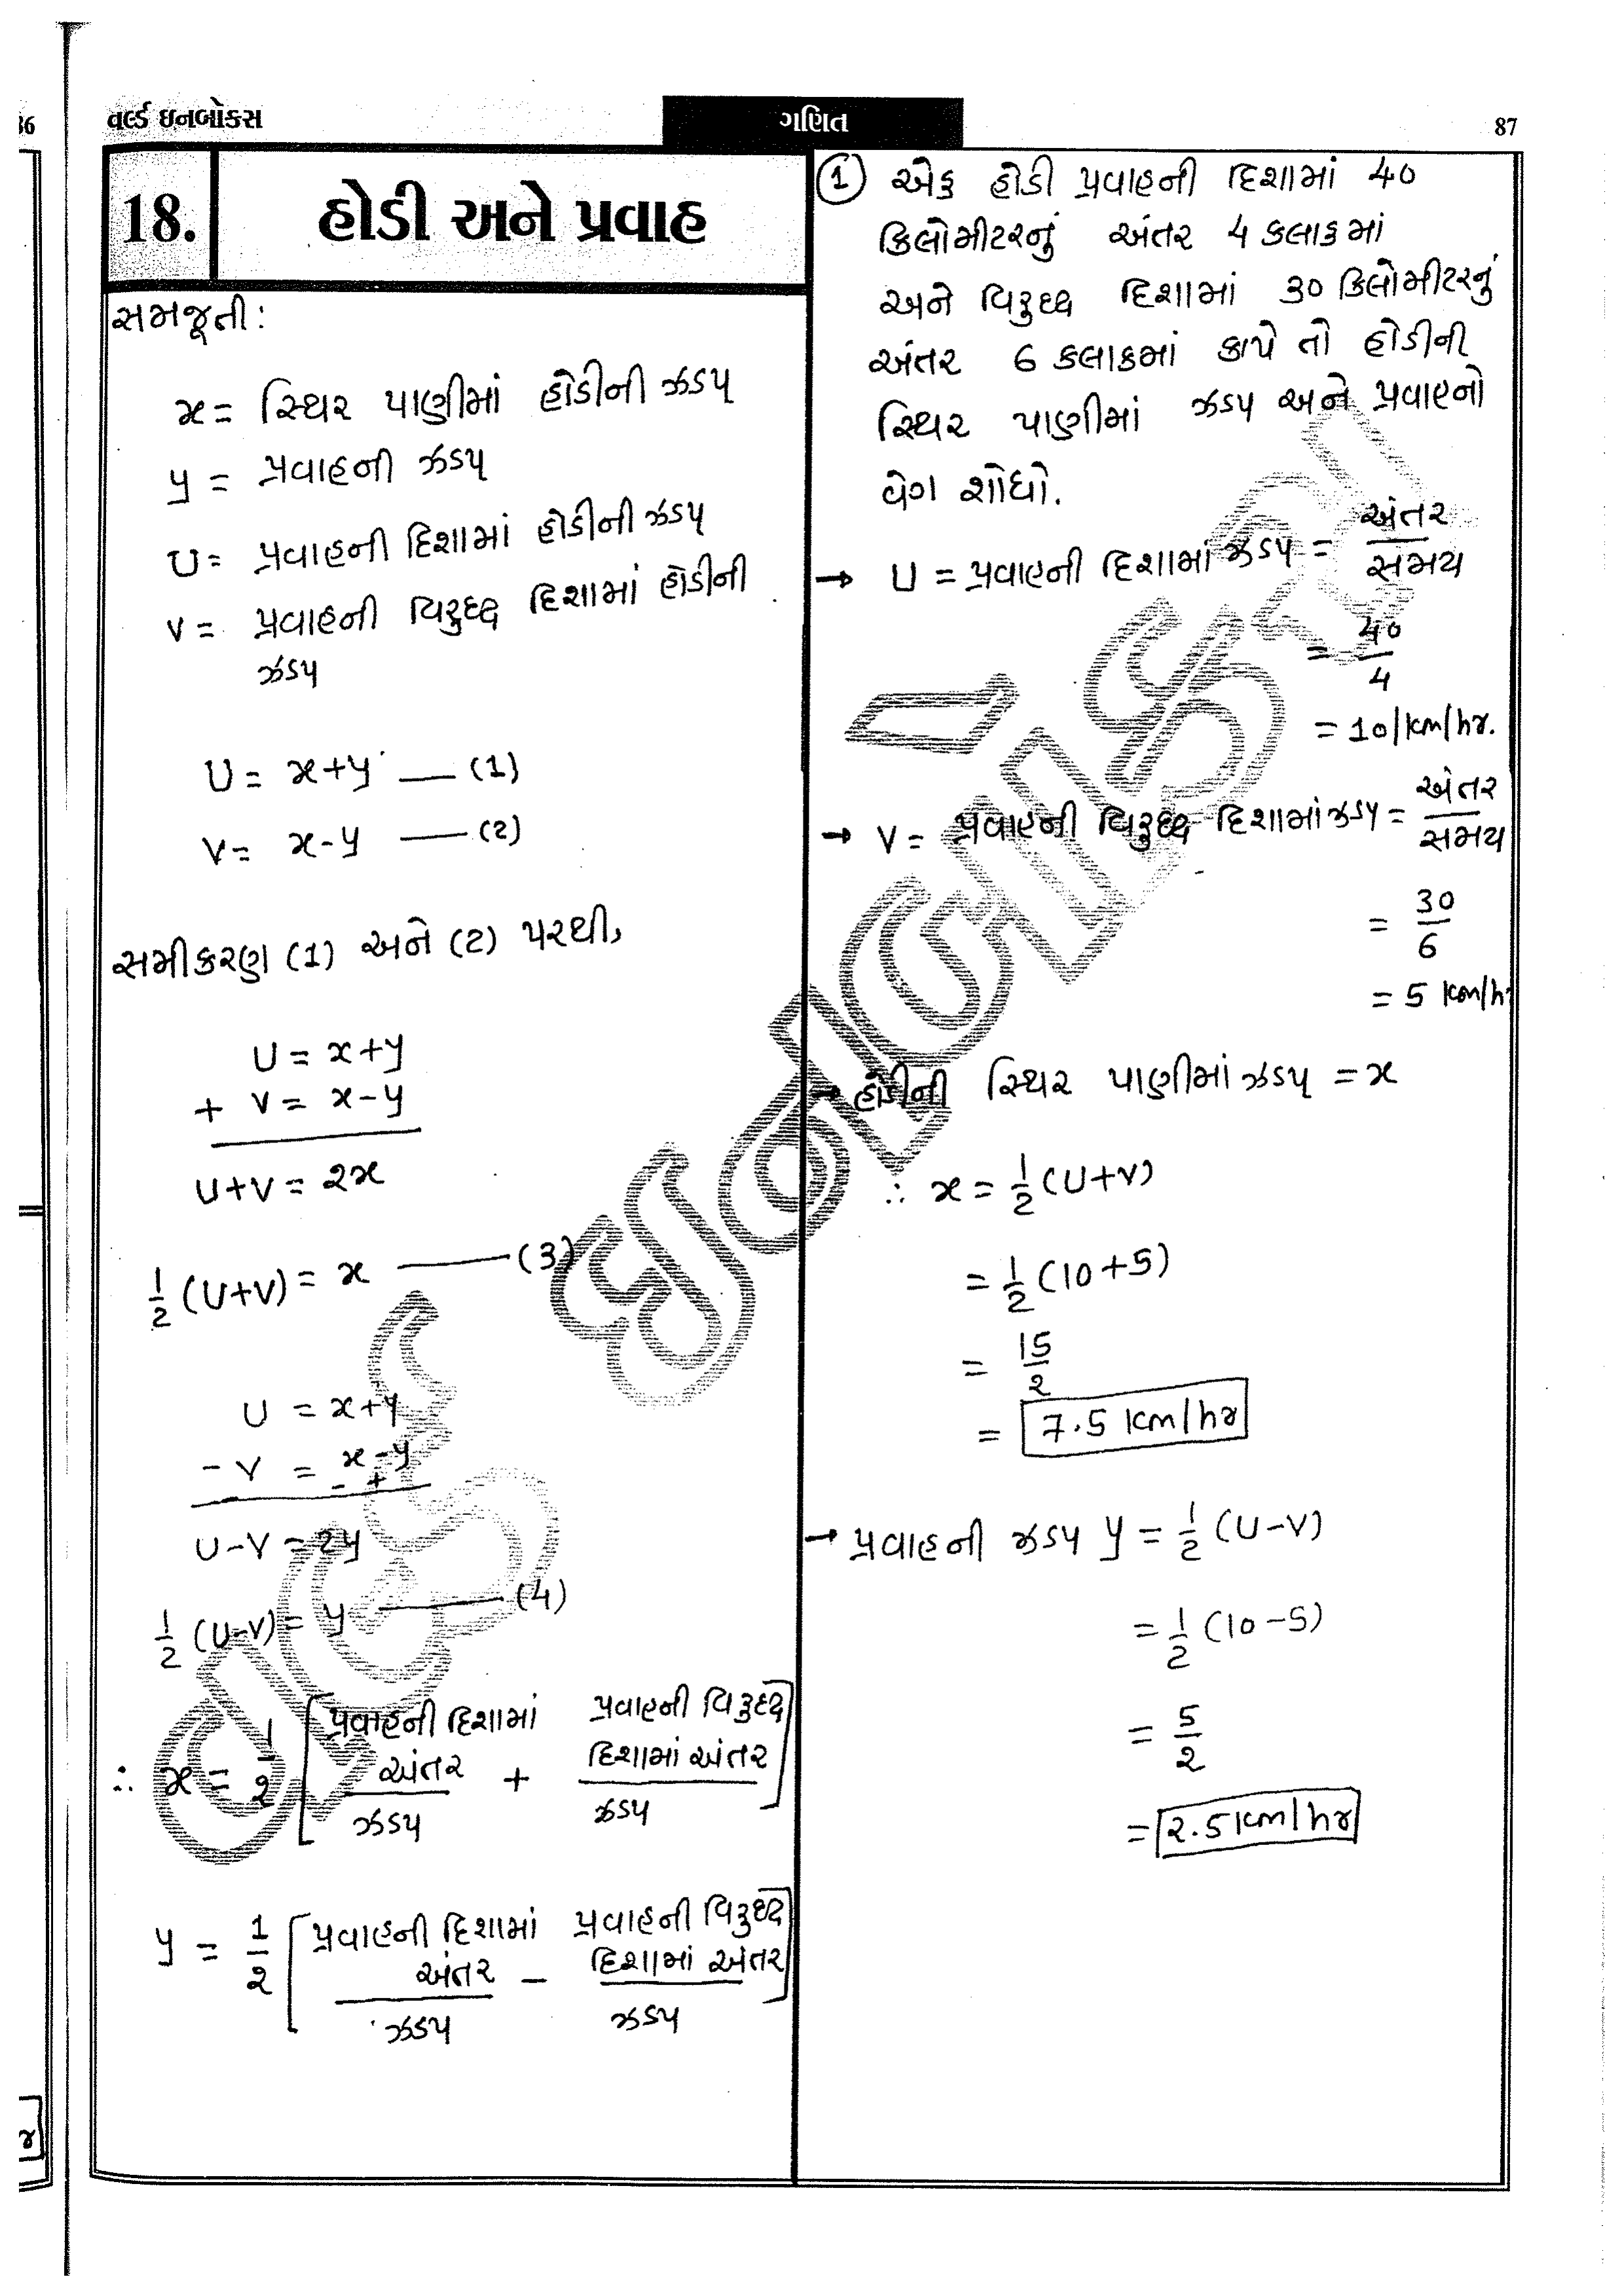 36
વર્લ્ડ ઇનબોક્સ
ગણિત
87
18.
હોડી અને પ્રવાહ
સમજૂતી:
x = સ્થિર પાણીમાં હોડીની ઝડપ
y = પ્રવાહની ઝડપ
U = પ્રવાહની દિશામાં હોડીની ઝડપ
V = પ્રવાહની વિરુધ્ધ દિશામાં હોડીની
ઝડપ
U = x+y — (1)
V = x-y — (2)
સમીકરણ (1) અને (2) પરથી,
U = x+y
+ V = x-y
U+V = 2x
1/2 (U+V) = x — (3)
U = x+y
- V = x-y
- +
U-V = 2y
1/2 (U-V) = y — (4)
∴ x = 1/2 [પ્રવાહની દિશામાં અંતર / ઝડપ + પ્રવાહની વિરુધ્ધ દિશામાં અંતર / ઝડપ]
y = 1/2 [પ્રવાહની દિશામાં અંતર / ઝડપ - પ્રવાહની વિરુધ્ધ દિશામાં અંતર / ઝડપ]
① એક હોડી પ્રવાહની દિશામાં 40
કિલોમીટરનું અંતર 4 કલાકમાં
અને વિરુધ્ધ દિશામાં 30 કિલોમીટરનું
અંતર 6 કલાકમાં કાપે તો હોડીની
સ્થિર પાણીમાં ઝડપ અને પ્રવાહનો
વેગ શોધો.
→ U = પ્રવાહની દિશામાં ઝડપ = અંતર / સમય
= 40/4
= 10 km/hr.
→ V = પ્રવાહની વિરુધ્ધ દિશામાં ઝડપ = અંતર / સમય
= 30/6
= 5 km/hr
→ હોડીની સ્થિર પાણીમાં ઝડપ = x
∴ x = 1/2 (U+V)
= 1/2 (10+5)
= 15/2
= 7.5 km/hr
→ પ્રવાહની ઝડપ y = 1/2 (U-V)
= 1/2 (10-5)
= 5/2
= 2.5 km/hr